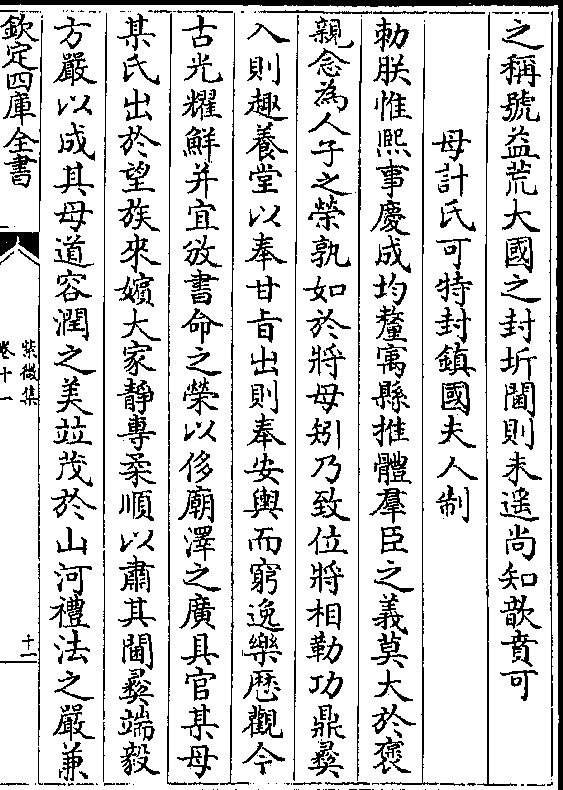 之稱號益荒大國之封圻閫則未遥尚知歆賁可
母計氏可特封鎮國夫人制
勅朕惟熙事慶成均釐寓縣推體羣臣之義莫大於褒
親念為人子之榮孰如於將母矧乃致位將相勒功鼎彛
入則趣養堂以奉甘旨出則奉安輿而窮逸樂歴觀今
古光耀鮮并宜放書命之榮以侈廟澤之廣具官某母
某氏出於望族來嬪大家靜專柔順以肅其閫彛端毅
方嚴以成其母道容潤之美竝茂於山河禮法之嚴兼
欽定四庫全書
紫微集
卷十一
十一